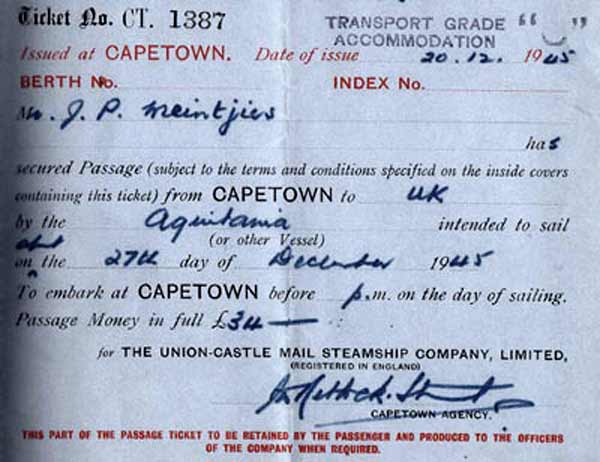 Ticket No. CT. 1387
TRANSPORT GRADE "C"
ACCOMMODATION
Issued at CAPETOWN. Date of issue 20.12. 1945
BERTH No. INDEX No.
Mr. J. P. Meintjies
has
secured Passage (subject to the terms and conditions specified on the inside covers
containing this ticket) from CAPETOWN to UK
by the Aquitania intended to sail
(or other Vessel)
abt
on the 27th day of December 1945
To embark at CAPETOWN before p.m. on the day of sailing.
Passage Money in full £34 —
for THE UNION-CASTLE MAIL STEAMSHIP COMPANY, LIMITED,
(REGISTERED IN ENGLAND)
CAPETOWN AGENCY.
THIS PART OF THE PASSAGE TICKET TO BE RETAINED BY THE PASSENGER AND PRODUCED TO THE OFFICERS
OF THE COMPANY WHEN REQUIRED.